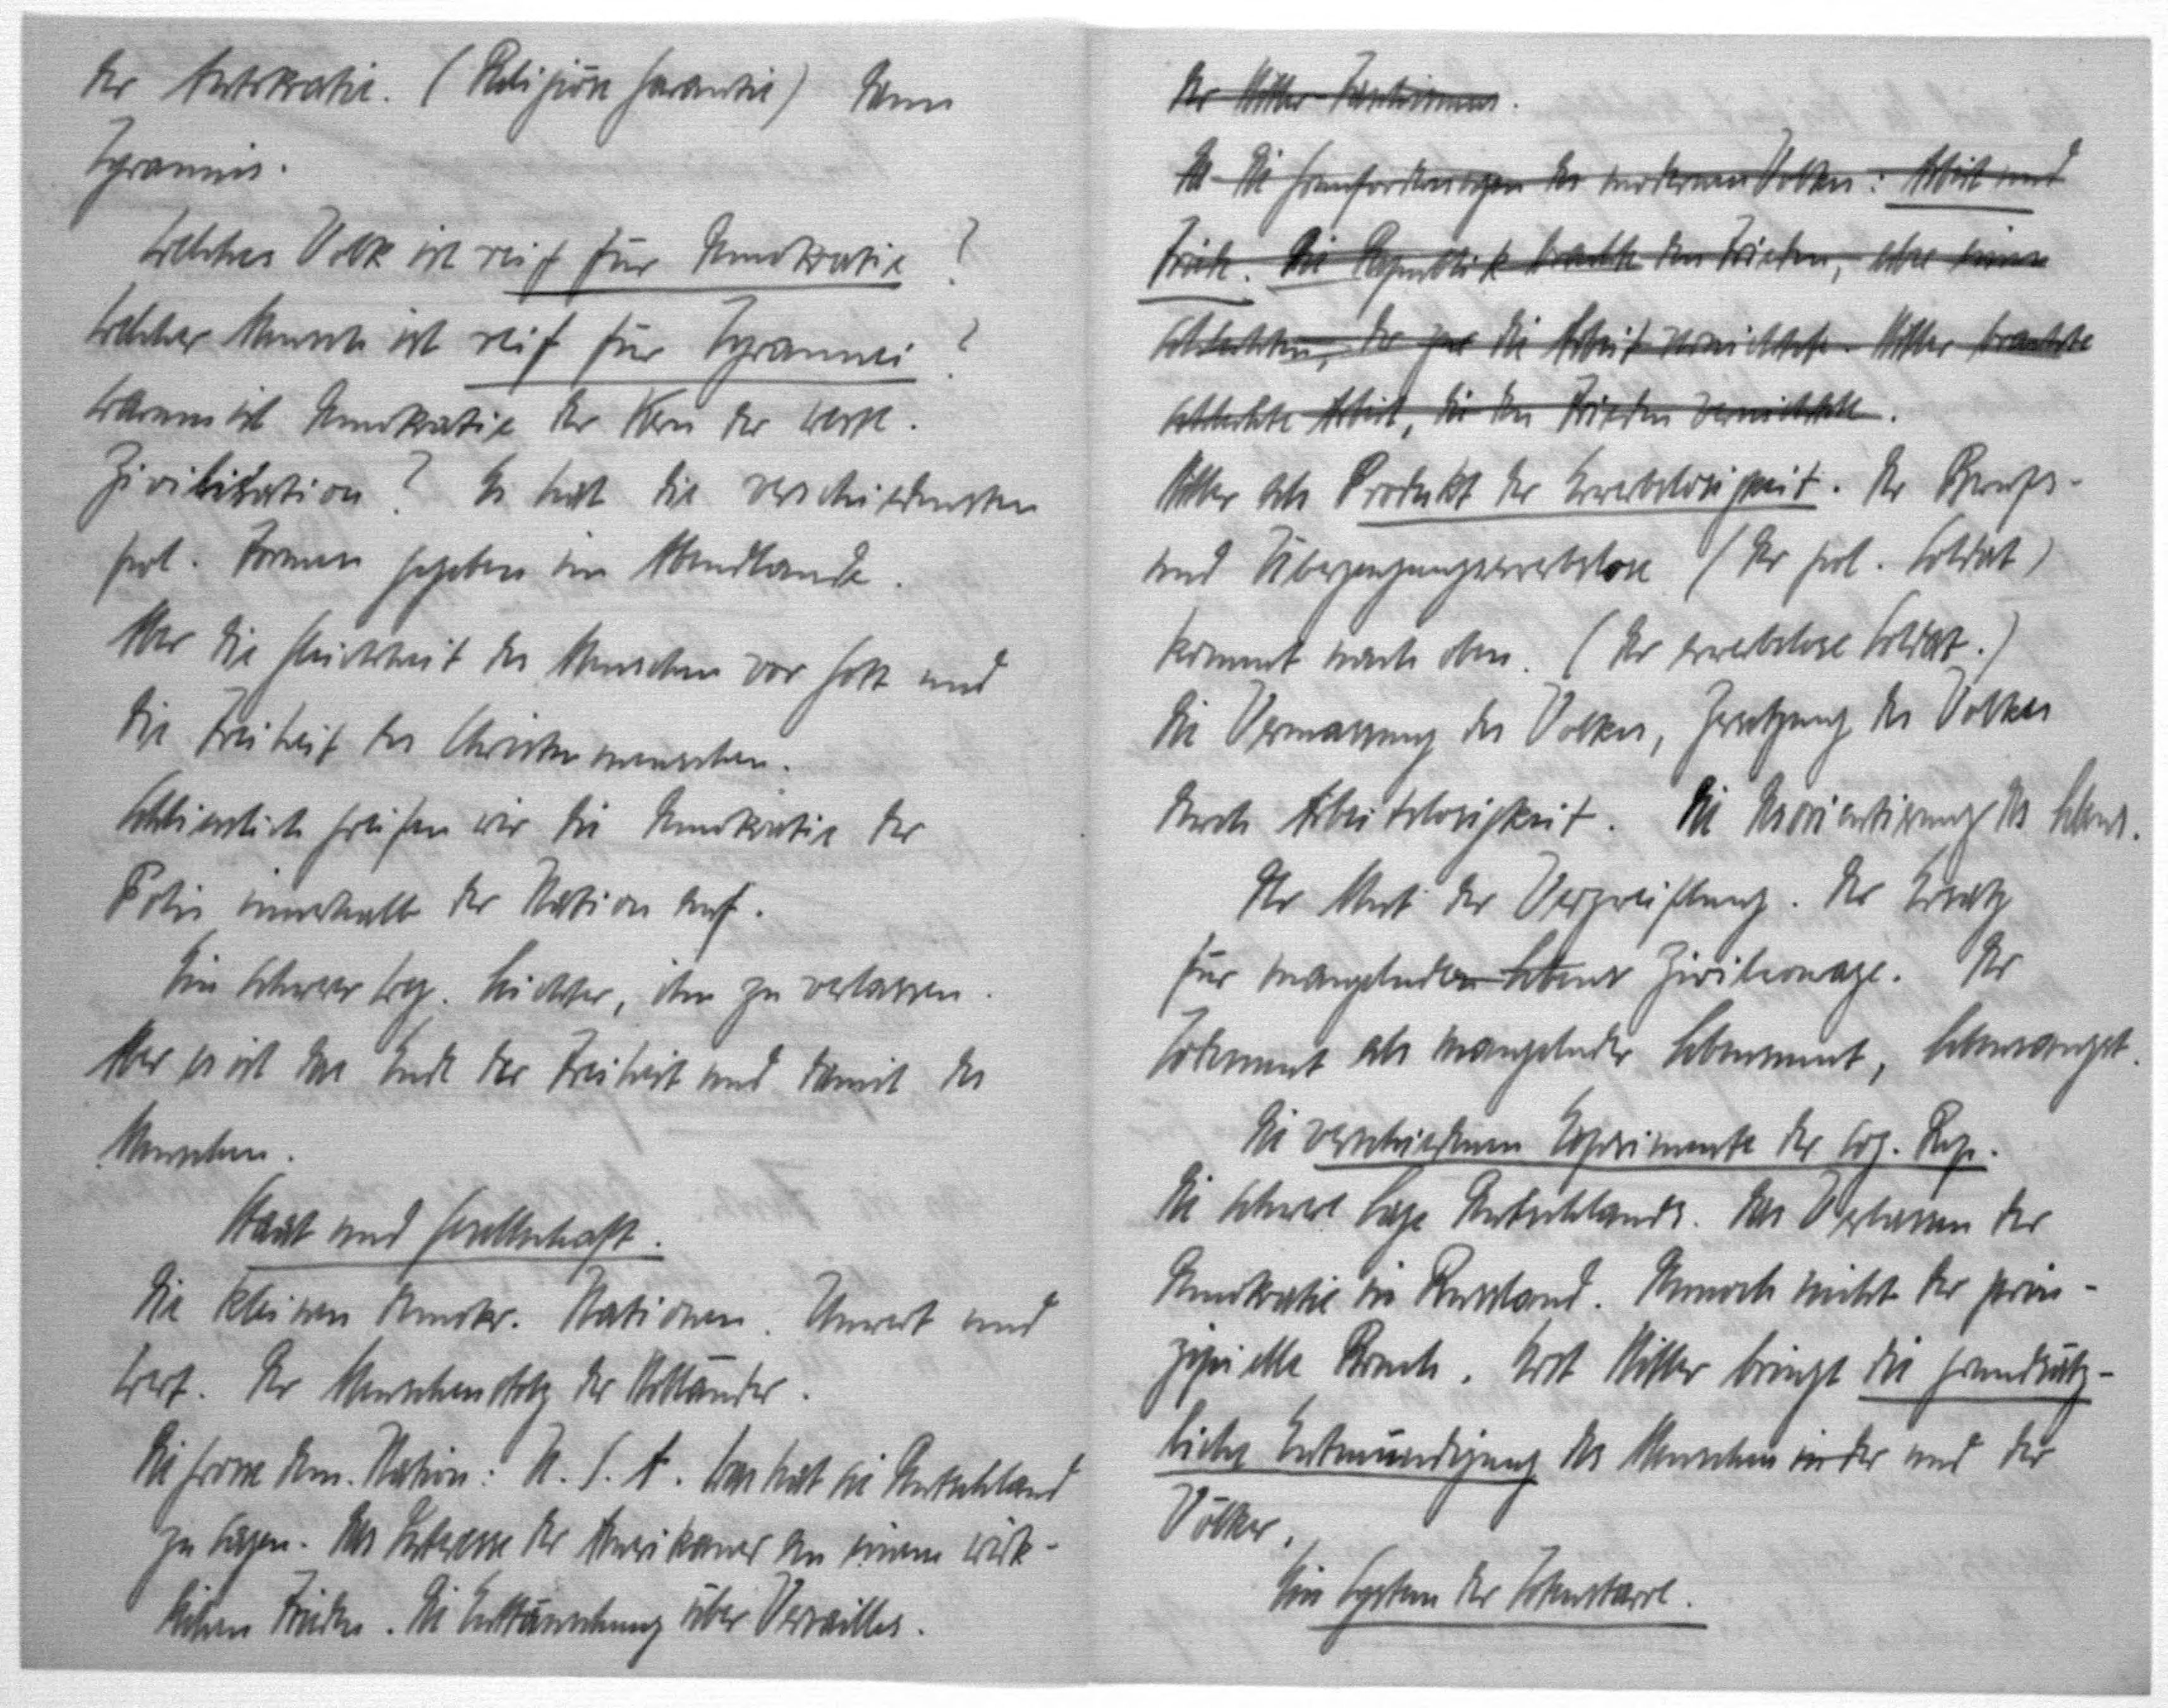 der Autokratie. (Religiöse Garantie) Dann
Tyrannis.
Welches Volk ist reif für Demokratie?
Welcher Mensch ist reif für Tyrannei?
Warum ist Demokratie der Kern der westl.
Zivilisation? Es hat die verschiedensten
pol. Formen gegeben im Abendlande.
Aber die Gleichheit des Menschen vor Gott und
die Freiheit des Christenmenschen.
Schliesslich greifen wir die Demokratie der
Polis innerhalb der Nation auf.
Ein schwerer Weg. Leichter, ihn zu verlassen.
Aber es ist das Ende der Freiheit und damit des
Menschen.
Staat und Gesellschaft.
Die kleinen demokr. Nationen. Unwert und
Wert. Der Menschenstolz der Holländer.
Die grosse dem. Nation: U. S. A. Was hat sie Deutschland
zu sagen. Das Interesse der Amerikaner an einem wirk-
lichen Frieden. Die Enttäuschung über Versailles.
Der Hitler-Faschismus.
Die Grundforderungen des modernen Volkes: Arbeit und
Friede. Die Republik brachte den Frieden, aber einen
schlechten, der die Arbeit vernichtete. Hitler brachte
schlechte Arbeit, die den Frieden vernichtete.
Hitler als Produkt der Erwerbslosigkeit. Der Berufs-
und Überzeugungserwerbslose (Der pol. Soldat)
kommt nach oben. (Der erwerbslose Soldat.)
Die Vermassung des Volkes, Zersetzung des Volkes
durch Arbeitslosigkeit. Die Desorientierung des Lebens.
Der Mut der Verzweiflung. Der Ersatz
für mangelnden Lebens Zivilcourage. Der
Todesmut als mangelnder Lebensmut, Lebensangst.
Die verschiedenen Experimente der soz. Rep.
Die schwere Lage Deutschlands. Das Verlassen der
Demokratie in Russland. Dennoch nicht der prin-
zipielle Bruch. Erst Hitler bringt die grundsätz-
liche Entmündigung des Menschen in der und der
Völker.
Ein System der Totenstarre.